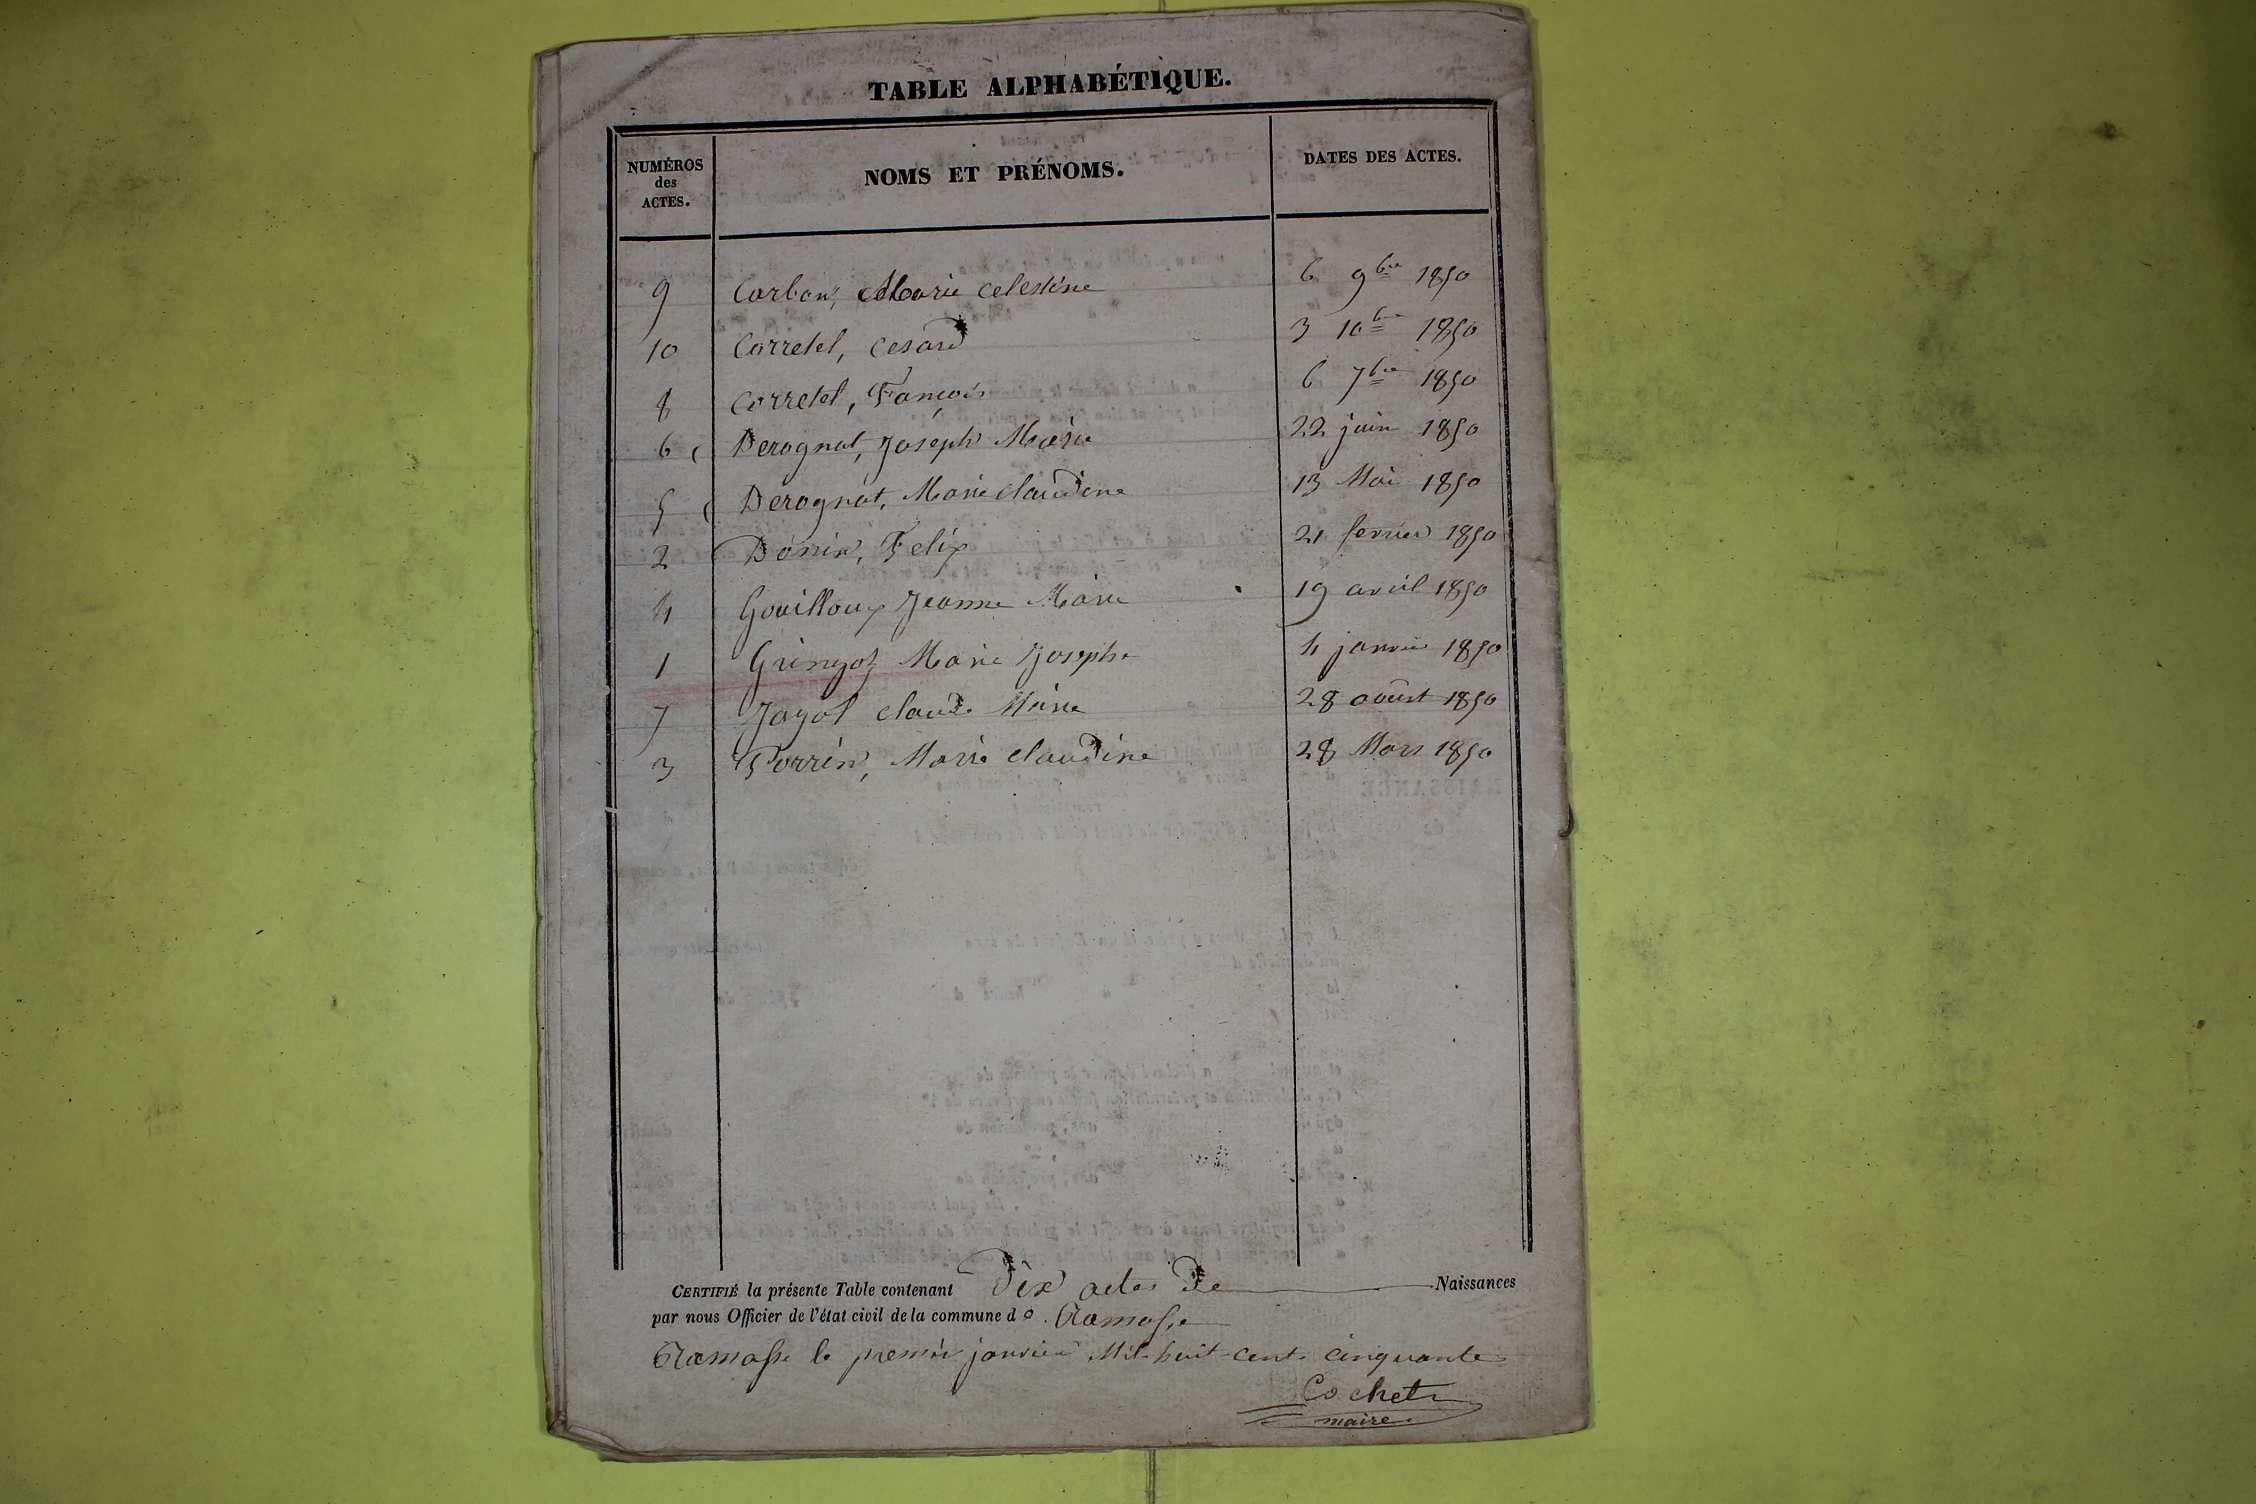 TABLE ALPHABÉTIQUE.
NUMÉROS des ACTES. NOMS ET PRÉNOMS. DATES DES ACTES.
9 Carbon, Marie celestine 6 9bre 1850
10 Carretel, cesard 3 10bre 1850
8 Corretel, Fançois 6 7bre 1850
6 Derognat, Joseph Marie 22 juin 1850
5 Derognat, Marie claudine 13 Mai 1850
2 Donin, Felix 21 fevrier 1850
4 Gouilloux Jeanne Marie 19 avril 1850
1 Gringoz Marie Josephe 4 janvier 1850
7 Jayot claude Marie 28 aoûst 1850
3 Perrin, Marie claudine 28 Mars 1850
CERTIFIÉ la présente Table contenant Dix actes De Naissances
par nous Officier de l'état civil de la commune de Ramasse
Ramasse le premier janvier Mil huit cent cinquante
Cochet
maire